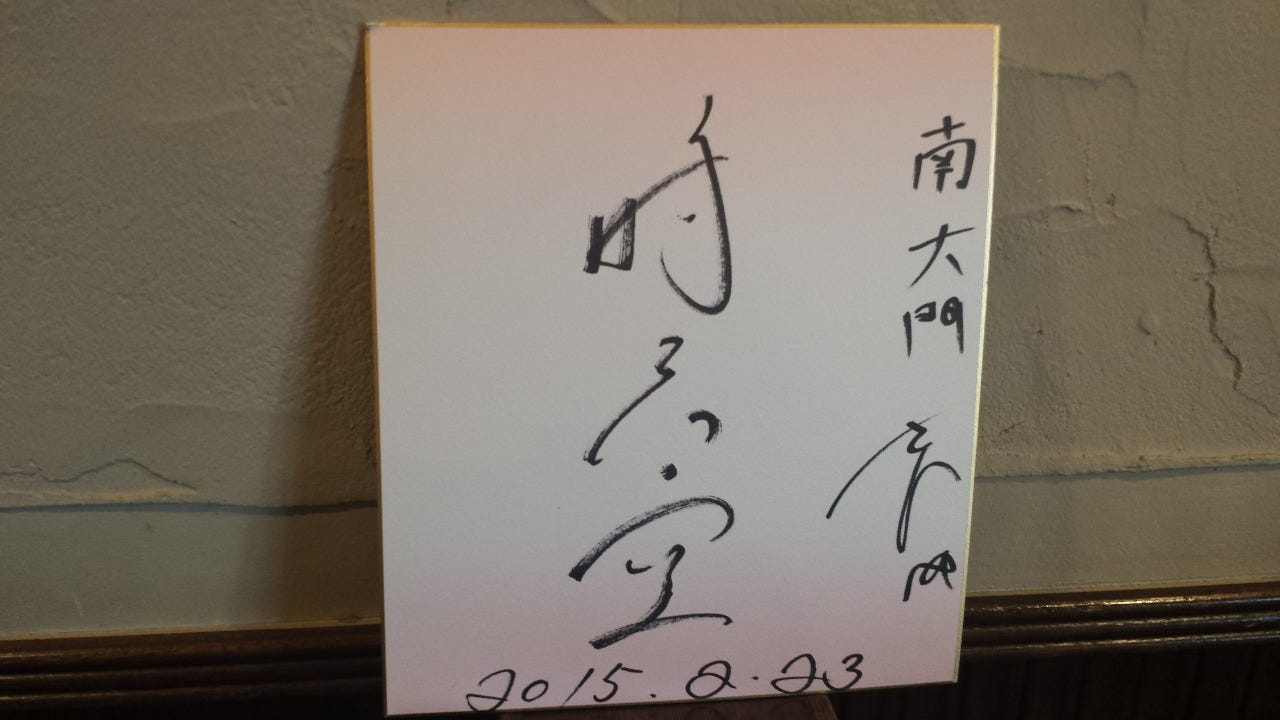 南大門
時天空
2015.2.23